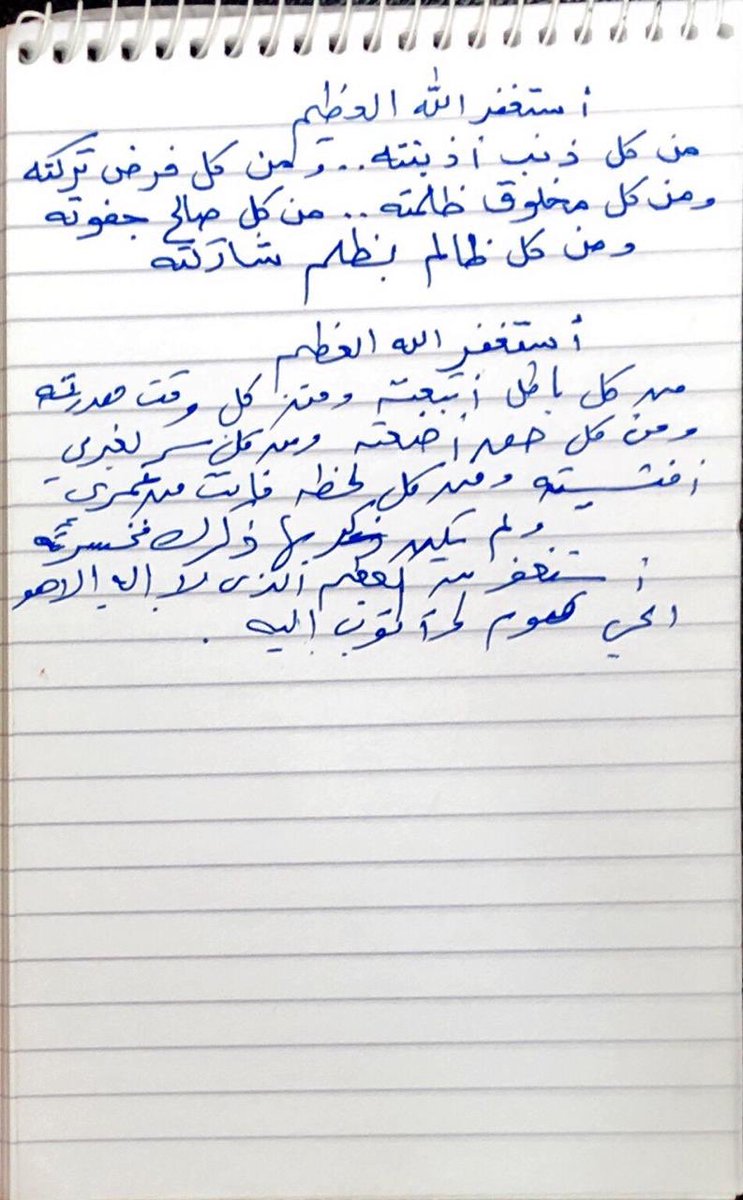 أستغفر الله العظيم
من كل ذنب أذنبته.. ومن كل فرض تركته
ومن كل مخلوق ظلمته.. من كل صالح جفوته
ومن كل ظالم بظلم شاركته
أستغفر الله العظيم
من كل باطل أتبعته ومن كل وقت هدرته
ومن كل حق أضعته ومن كل سر لغيري
أفشيته ومن كل لحظه فاتت من عمري
ولم يكن بها ذكرك فخسرته
أستغفر الله العظيم الذي لا إله إلا هو
الحي القيوم وأتوب إليه .